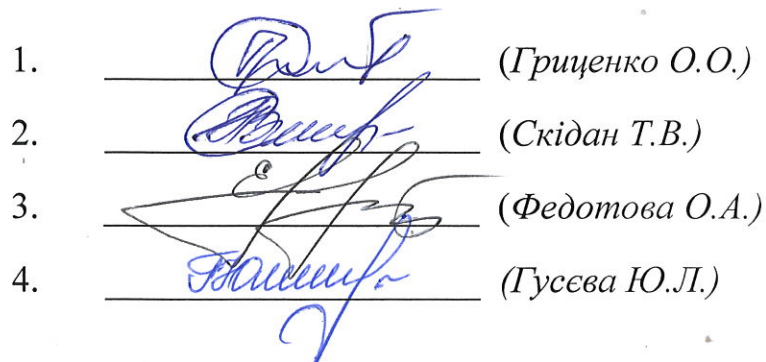 1. (Гриценко О.О.)
2. (Скідан Т.В.)
3. (Федотова О.А.)
4. (Гусєва Ю.Л.)